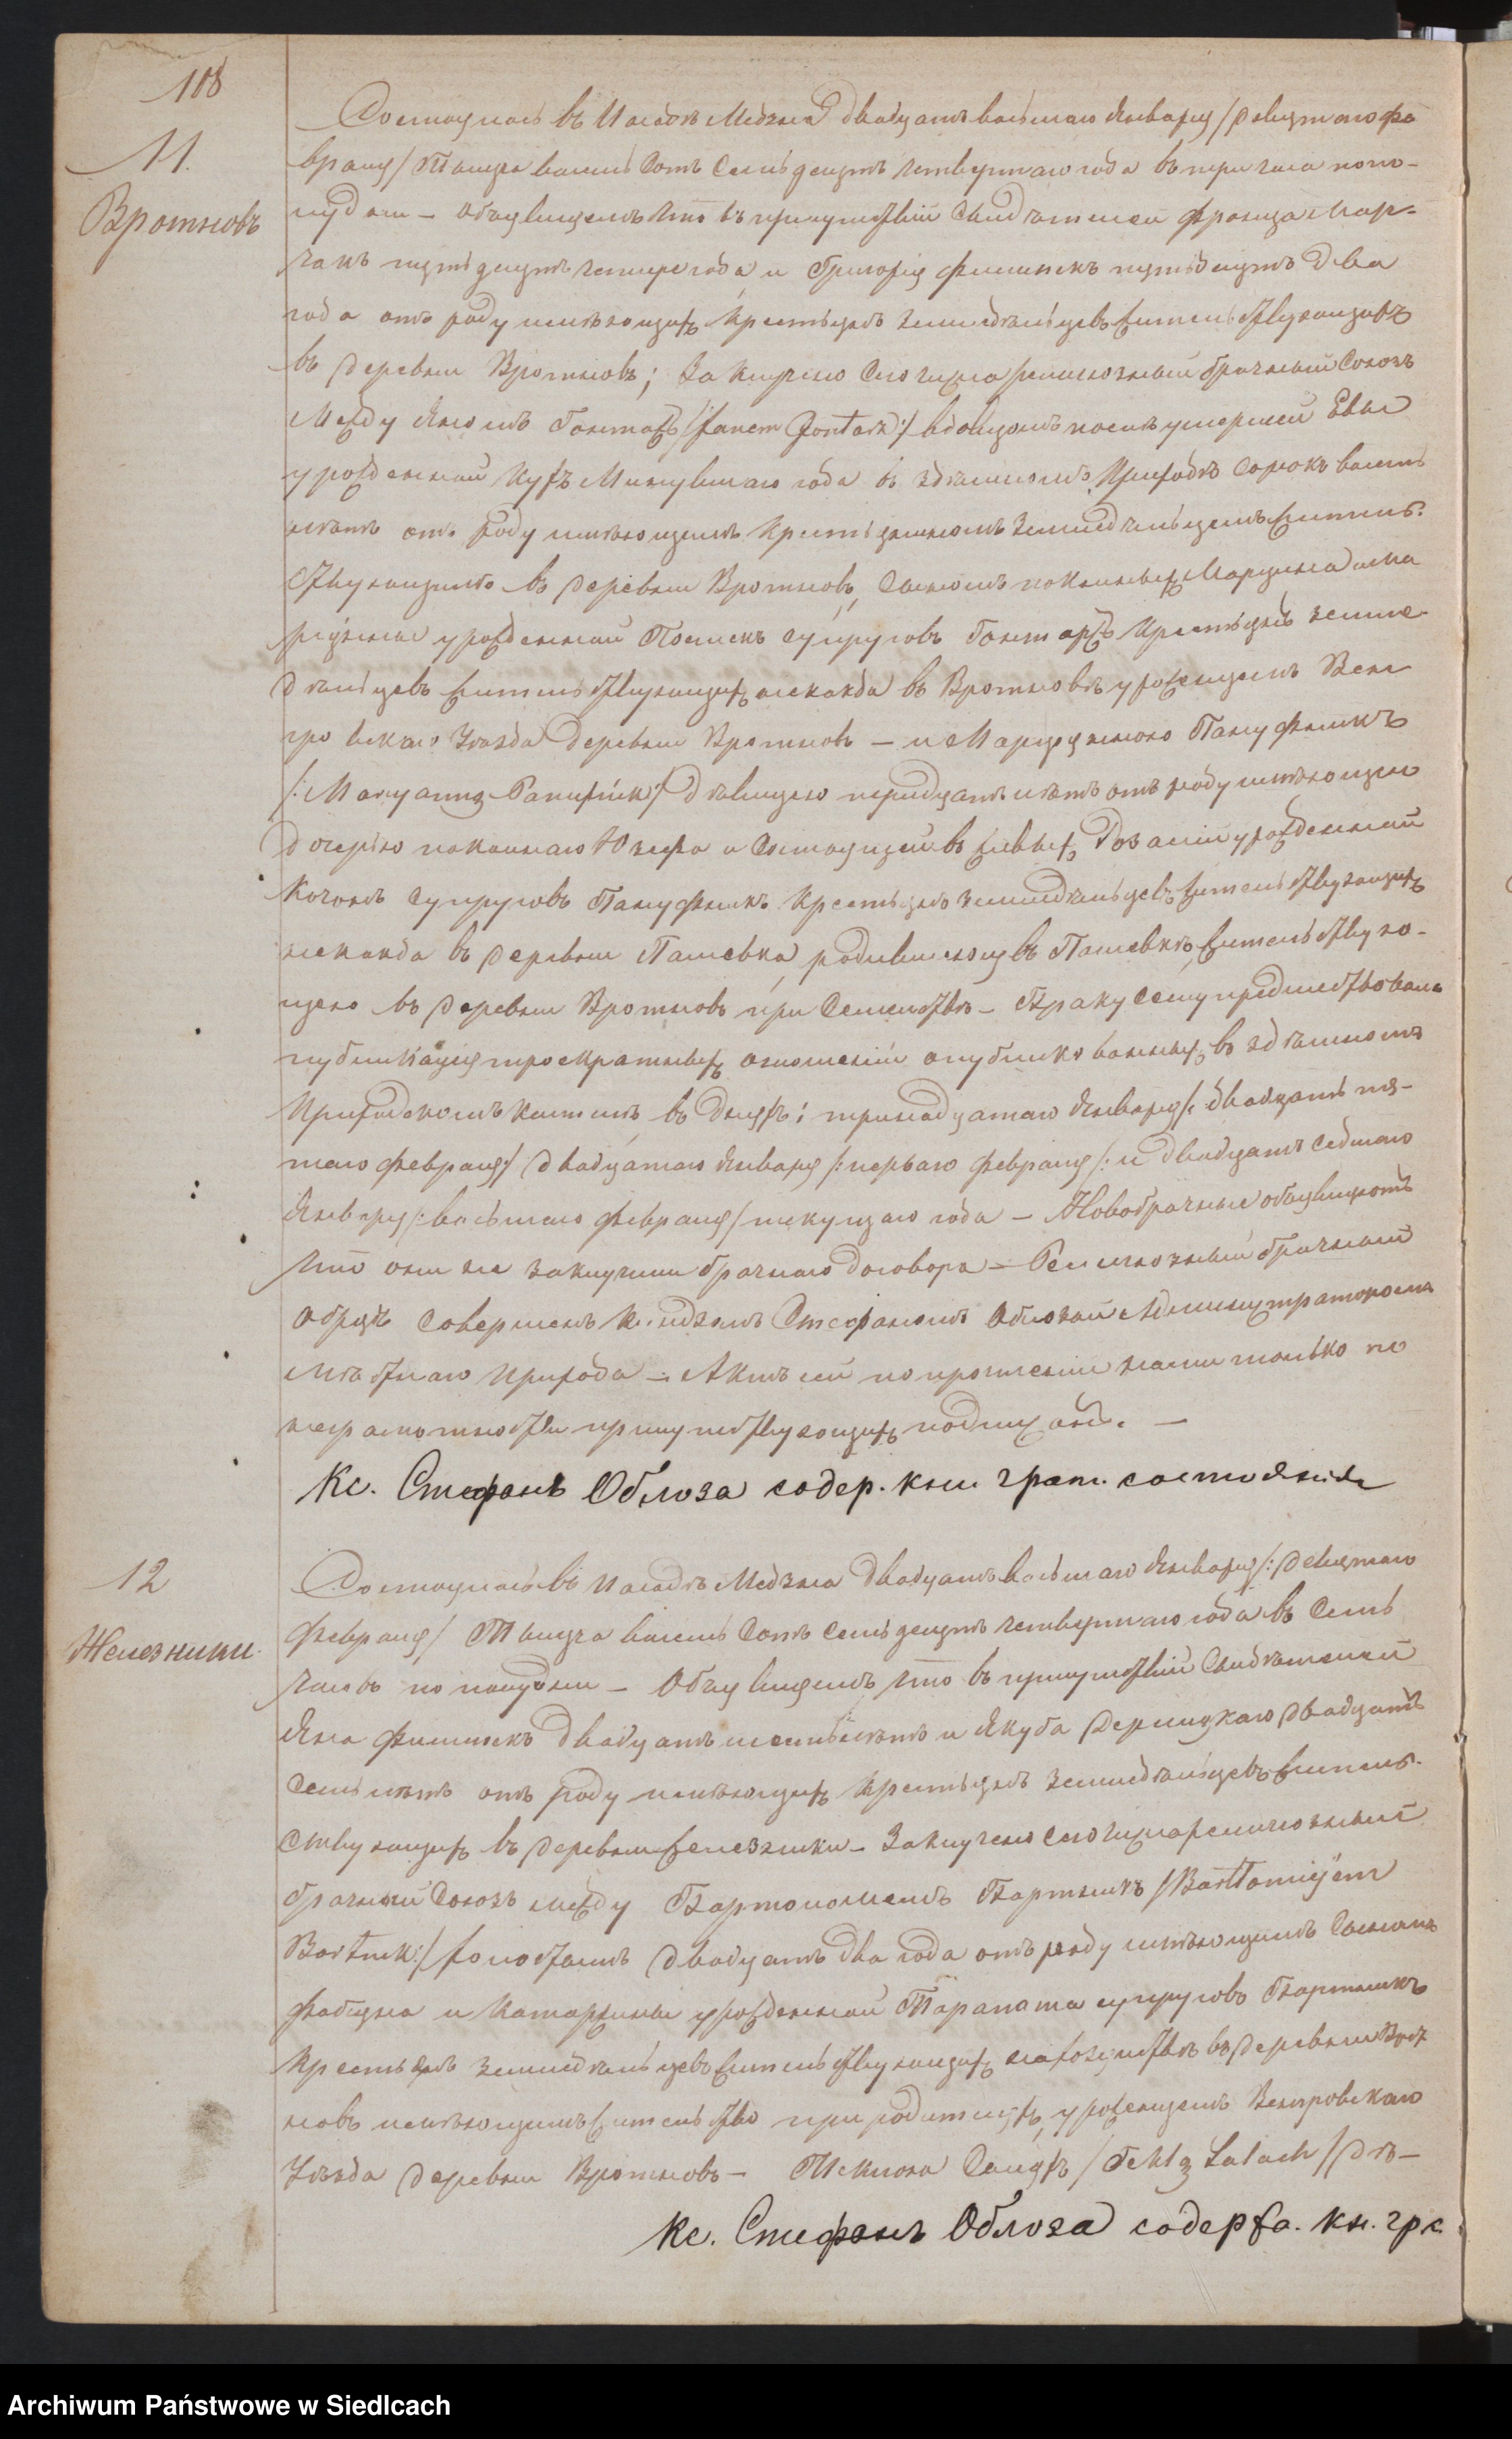 108
11.
Вротновъ
Состоялось въ Посадѣ Медзна двадцать восьмаго Января /девятаго Фе
враля/ Тысяча восемь сотъ семьдесятъ четвертаго года въ три часа попо-
лудни – Объявляемъ что въ присутствіи Свидѣтелей Франца Мар-
чакъ пятьдесятъ четыре года и Григорія Филипекъ пятьдесятъ два
года отъ роду имѣющихъ Крестьянъ земледѣльцевъ жительствующихъ
въ деревни Вротновъ; Заключено сего числа религіозный брачный Союзъ
Между Яномъ Гонтажъ /:Janem Gontarz:/ вдовцомъ послѣ умершей Евы
урожденной Минувшаго года въ здѣшномъ Приходѣ Сорокъ восемь
лѣтъ отъ роду имѣющемъ Крестьяниномъ Земледѣльцемъ житель-
ствующимъ въ деревни Вротновъ, Сыномъ покойныхъ Марцина и Ма
ріянны урожденной супруговъ Гонтаржъ Крестьянъ земле
дѣльцевъ жительствующихъ некогда въ Вротновѣ уроженцемъ Вен
гровскаго Уѣзда деревни Вротновъ – и Марціянною Пануфникъ
/:Maryanną Panufnik:/ дѣвицею тридцать лѣтъ отъ роду имѣющею
дочерью покойнаго Юзефа и Состоящей въ живыхъ Розаліи урожденной
Кочонъ супруговъ Пануфникъ Крестьянъ земледѣльцевъ жительствующихъ
некогда въ деревни Пашевка, родившеюся въ Пашевкѣ, жительствую-
щею въ деревни Вротновъ при Семействѣ – Браку сему предшествовала
публикація троекратныхъ оглошеній опубликованныхъ въ здѣшномъ
Приходскомъ костелѣ въ дняхъ: тринадцатаго Января /:двадцать пя-
таго Февраля:/ двадцатаго Января /:перваго Февраля/: и двадцать седмаго
Января /:восьмаго Февраля/ текущаго года – Новобрачные объявляютъ
что они не заключили брачнаго договора – Религіозный брачный
обрядъ совершенъ Ксендзомъ Стефаномъ Облозой Администраторомъ
мѣстнаго Прихода – Актъ сей по прочтеніи нами только по
неграмотности присутствующихъ подписанъ. –
Кс. Стефанъ Облоза содер. кни. граж. состоянія
12
Железники.
Состоялось въ Посадѣ Медзна двадцать восьмаго Января /:девятаго
Февраля/ Тысяча восемь сотъ семьдесятъ четвертаго года въ семь
часовъ по полудни – Объявляемъ что въ присутствіи Свидѣтелей
Яна Филипекъ двадцать шесть лѣтъ и Якуба двадцать
семь лѣтъ отъ роду имѣющихъ Крестьянъ земледѣльцевъ житель-
ствующихъ въ деревни Железники – Заключено сего числа религіозный
брачный Союзъ между Бартоломеемъ Бартникъ /Bartłomiejem
Bartnik:/ холостымъ двадцать два года отъ роду имѣющимъ Сыномъ
Фабіяна и Катаржины урожденной Тарапата супруговъ Бартникъ
Крестьянъ земледѣльцевъ жительствующихъ на хозяйствѣ въ деревни Врот
новъ имѣющимъ жительство при родителяхъ, уроженцемъ Венгровскаго
Уѣзда деревни Вротновъ – Теклою Саляхъ /Teklą Salach/ дѣ–
Кс. Стефанъ Облоза содержа. кн. гр с.
Archiwum Państwowe w Siedlcach